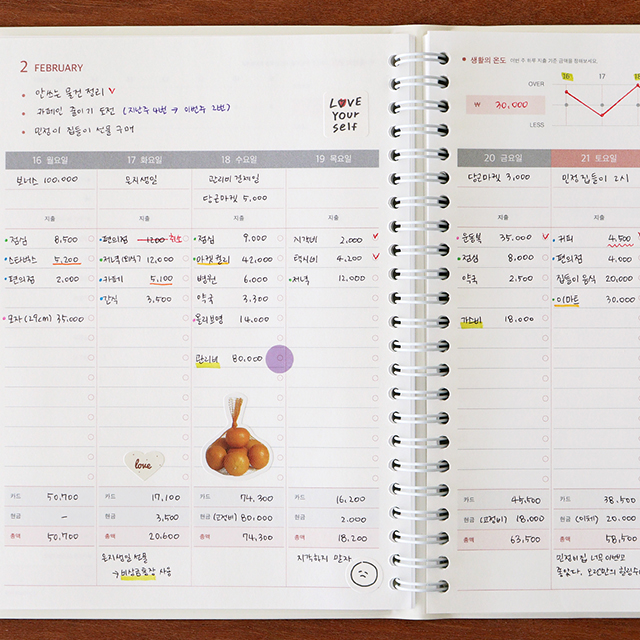 2 FEBRUARY
안쓰는 물건 정리 ✓
카페인 줄이기 도전 (지난주 4번 → 이번주 2번)
민정이 집들이 선물 구매
LOVE
Your
self
16 월요일 17 화요일 18 수요일 19 목요일
보너스 100,000 은지생일 관리비 결제일
당근마켓 5,000
지출 지출 지출 지출
점심 8,500 편의점 1200 취소 점심 9,000 지각비 2,000
스타벅스 5,200 저녁(회식) 12,000 마켓컬리 42,000 택시비 4,200
편의점 2,000 카페 5,100 병원 6,000 저녁 12,000
간식 3,500 약국 3,300
모자(29cm) 35,000 올리브영 14,000
관리비 80,000
love
카드 50,700 17,100 74,300 16,200
현금 - 3,500 (고정비) 80,000 2,000
총액 50,700 20,600 74,300 18,200
은지생일 선물 지각하지 말자
→ 비상금통장 사용
생활의 온도 이번 주 하루 지출 기준 금액을 정해보세요.
OVER 16 17 18
₩ 30,000
LESS
20 금요일 21 토요일
당근마켓 3,000 민정 집들이 2시
지출 지출
운동복 35,000 커피 4,500
점심 8,000 편의점 4,000
약국 2,500 집들이 음식 20,000
이마트 30,000
가스비 18,000
카드 45,500 38,500
현금 (고정비) 18,000 (이체) 20,000
총액 63,500 58,500
민정이집 너무 이쁘고
좋았다.